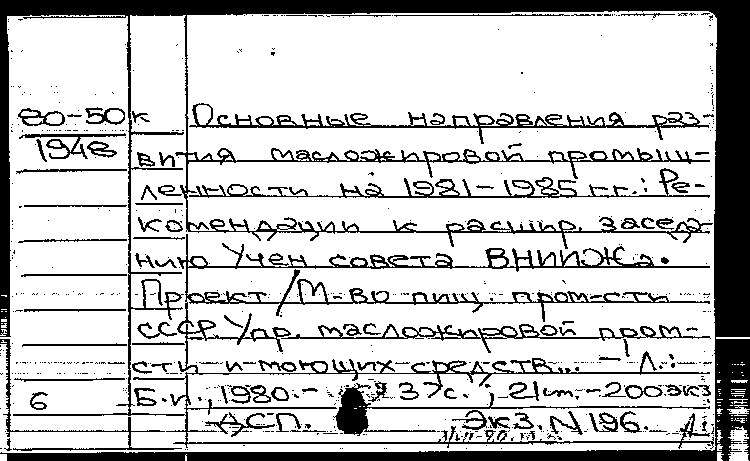 80-50к Основные направления раз-
1948 вития масложировой промыш-
ленности на 1981-1985 гг.: Ре-
комендации к расшир. заседа-
нию Учен совета ВНИИЖа.
Проект / М-во пищ. пром-сти
СССР. Упр. масложировой пром-
сти и моющих средств... - Л.:
6 Б.и., 1980. - 37с.; 21 см. - 200 экз
ДСП. Экз. N 196.